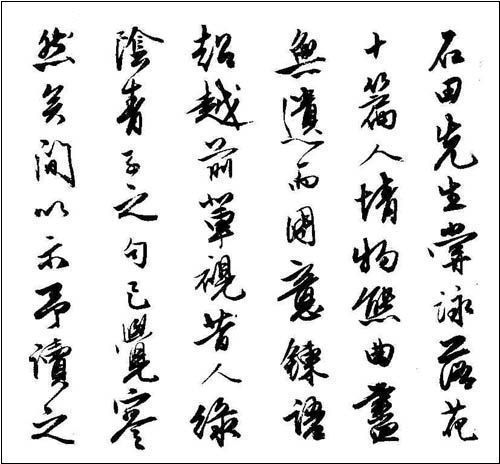 石田先生嘗詠落花
十篇人情物態曲盡
無遺而用意鍊語
超越前輩視昔人綠
陰青子之句已覺寒
然矣間以示予讀之